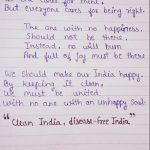 But everyone cares for being right.
The one with no happiness.
Should not be there.
Instead, no will burn
And full of joy must be there
We should make our India happy.
By keeping it clean,
We must be united
with no one with an unhappy Soul
"Clean India, disease-free India"